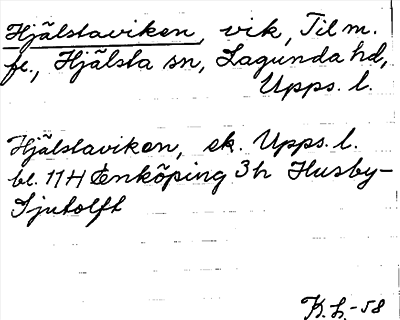 Hjälstaviken, vik, Til m.
fl., Hjälsta sn, Lagunda hd,
Upps. l.
Hjälstaviken, ek. Upps. l.
bl. 11H Enköping 3h Husby-
Sjutolft
K.L.-58